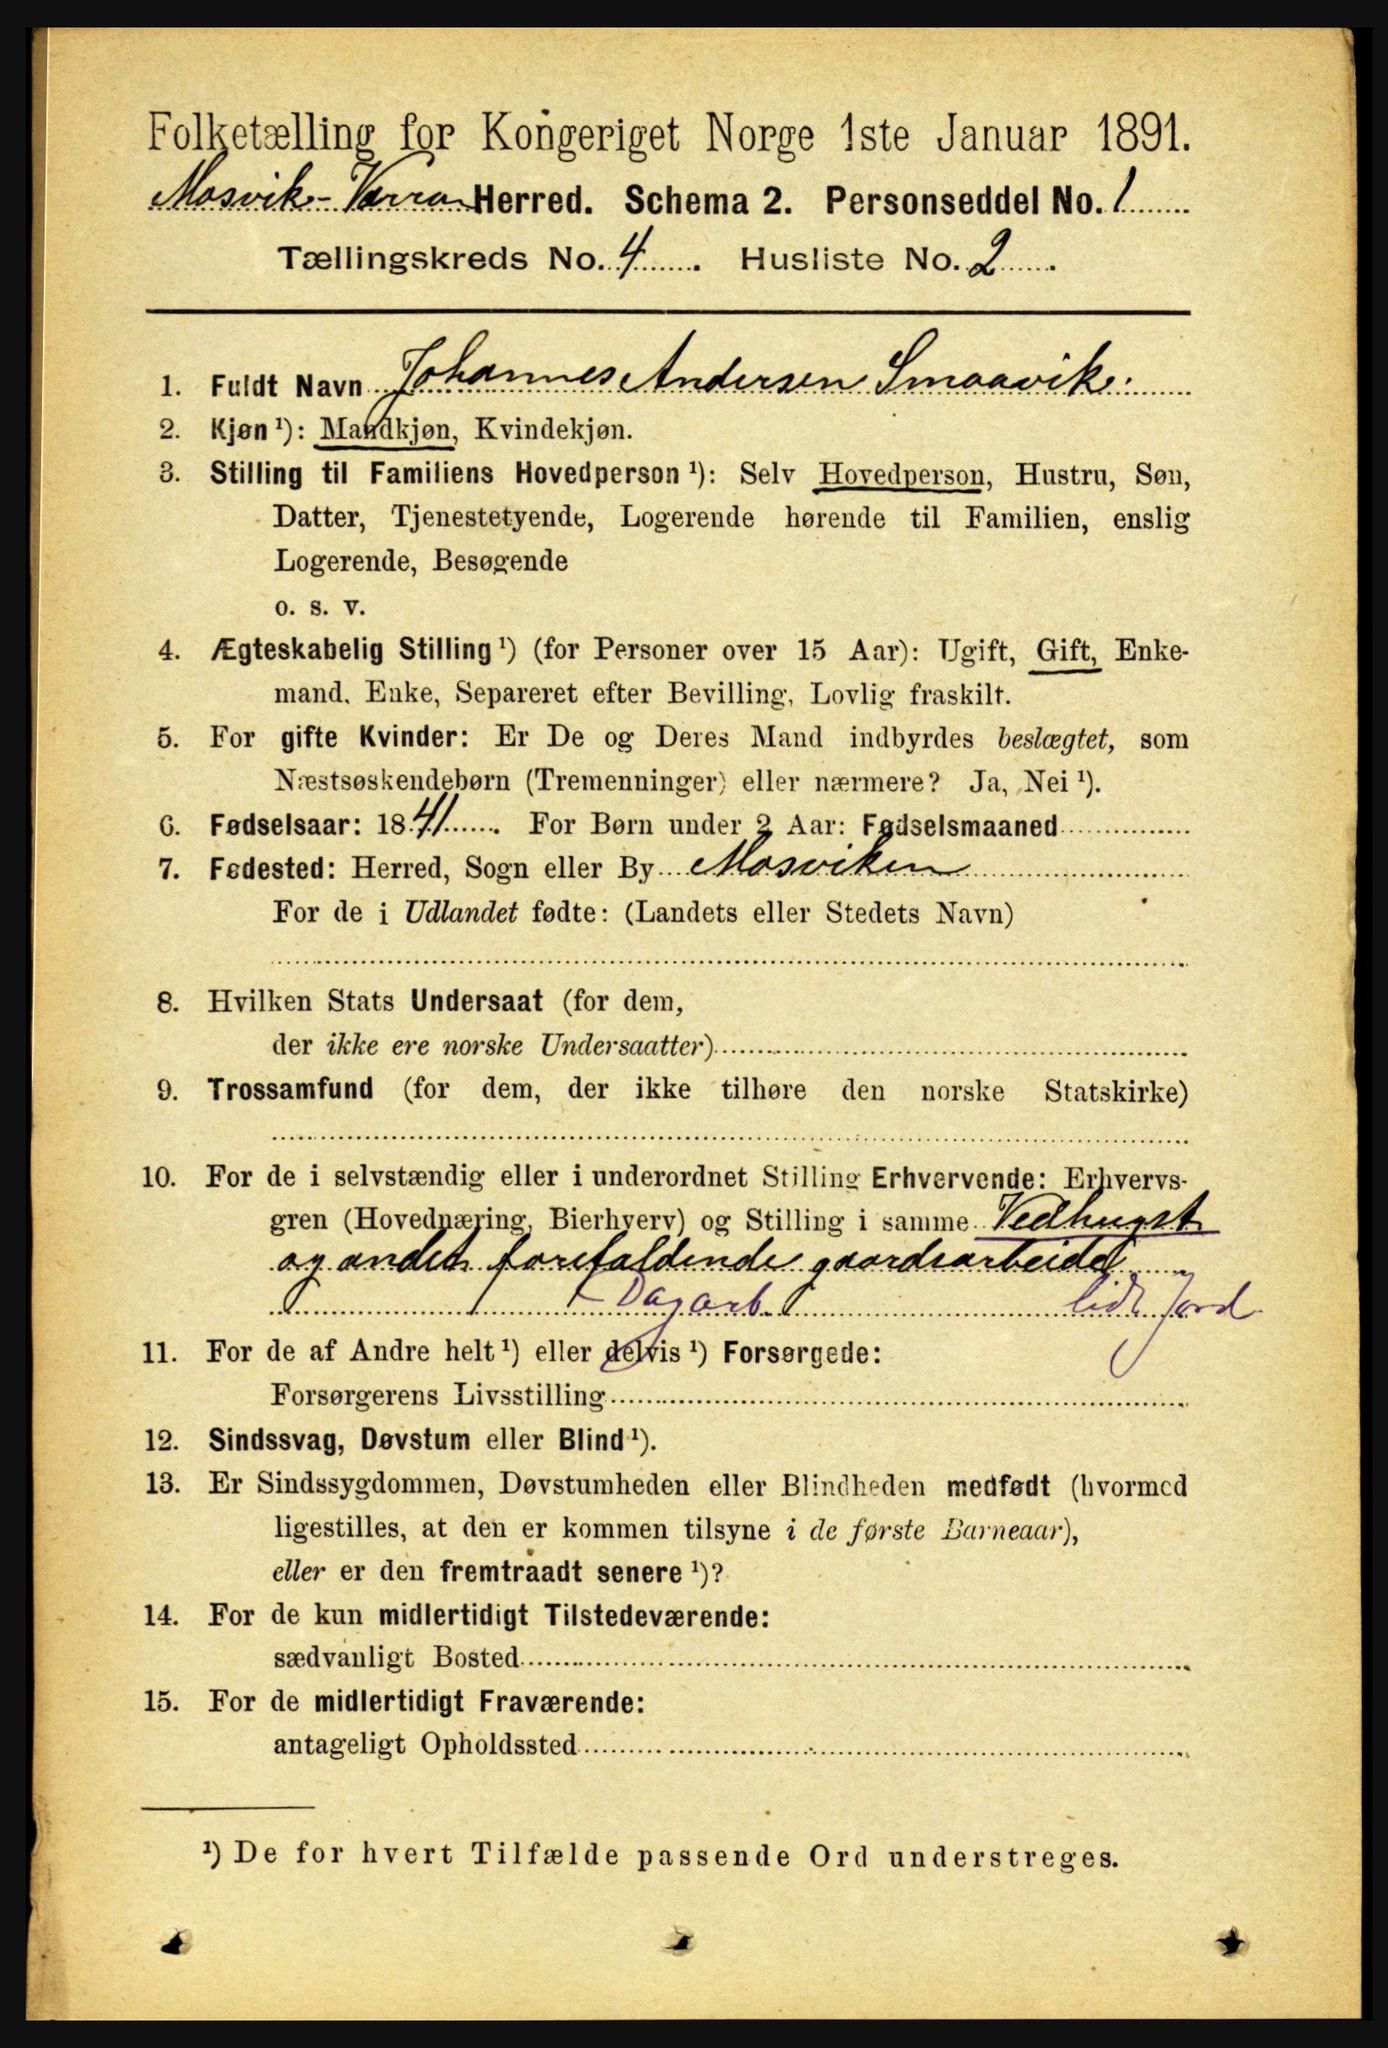 Folketælling for Kongeriget Norge 1ste Januar 1891.
Mosvik-Verran Herred. Schema 2. Personseddel No. 1
Tællingskreds No. 4. Husliste No. 2.
1. Fuldt Navn Johannes Andersen Smaavik.
2. Kjøn ¹): Mandkjøn, Kvindekjøn.
3. Stilling til Familiens Hovedperson ¹): Selv Hovedperson, Hustru, Søn,
Datter, Tjenestetyende, Logerende hørende til Familien, enslig
Logerende, Besøgende
o. s. v.
4. Ægteskabelig Stilling ¹) (for Personer over 15 Aar): Ugift, Gift, Enke-
mand, Enke, Separeret efter Bevilling, Lovlig fraskilt.
5. For gifte Kvinder: Er De og Deres Mand indbyrdes beslægtet, som
Næstsøskendebørn (Tremenninger) eller nærmere? Ja, Nei ¹).
6. Fødselsaar: 1841. For Børn under 2 Aar: Fødselsmaaned
7. Fødested: Herred, Sogn eller By Mosviken
For de i Udlandet fødte: (Landets eller Stedets Navn)
8. Hvilken Stats Undersaat (for dem,
der ikke ere norske Undersaatter)
9. Trossamfund (for dem, der ikke tilhøre den norske Statskirke)
10. For de i selvstændig eller i underordnet Stilling Erhvervende: Erhvervs-
gren (Hovednæring, Bierhverv) og Stilling i samme Vedhugst
og andet forefaldende gaardsarbeide
Dagarb. lidt Jord
11. For de af Andre helt ¹) eller delvis ¹) Forsørgede:
Forsørgerens Livsstilling
12. Sindssvag, Døvstum eller Blind ¹).
13. Er Sindssygdommen, Døvstumheden eller Blindheden medfødt (hvormed
ligestilles, at den er kommen tilsyne i de første Barneaar),
eller er den fremtraadt senere ¹)?
14. For de kun midlertidigt Tilstedeværende:
sædvanligt Bosted
15. For de midlertidigt Fraværende:
antageligt Opholdssted
¹) De for hvert Tilfælde passende Ord understreges.